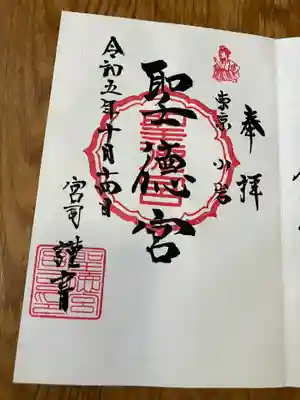 奉拝
東京 小岩
聖德宮
令和五年十月十四日
宮司 謹書